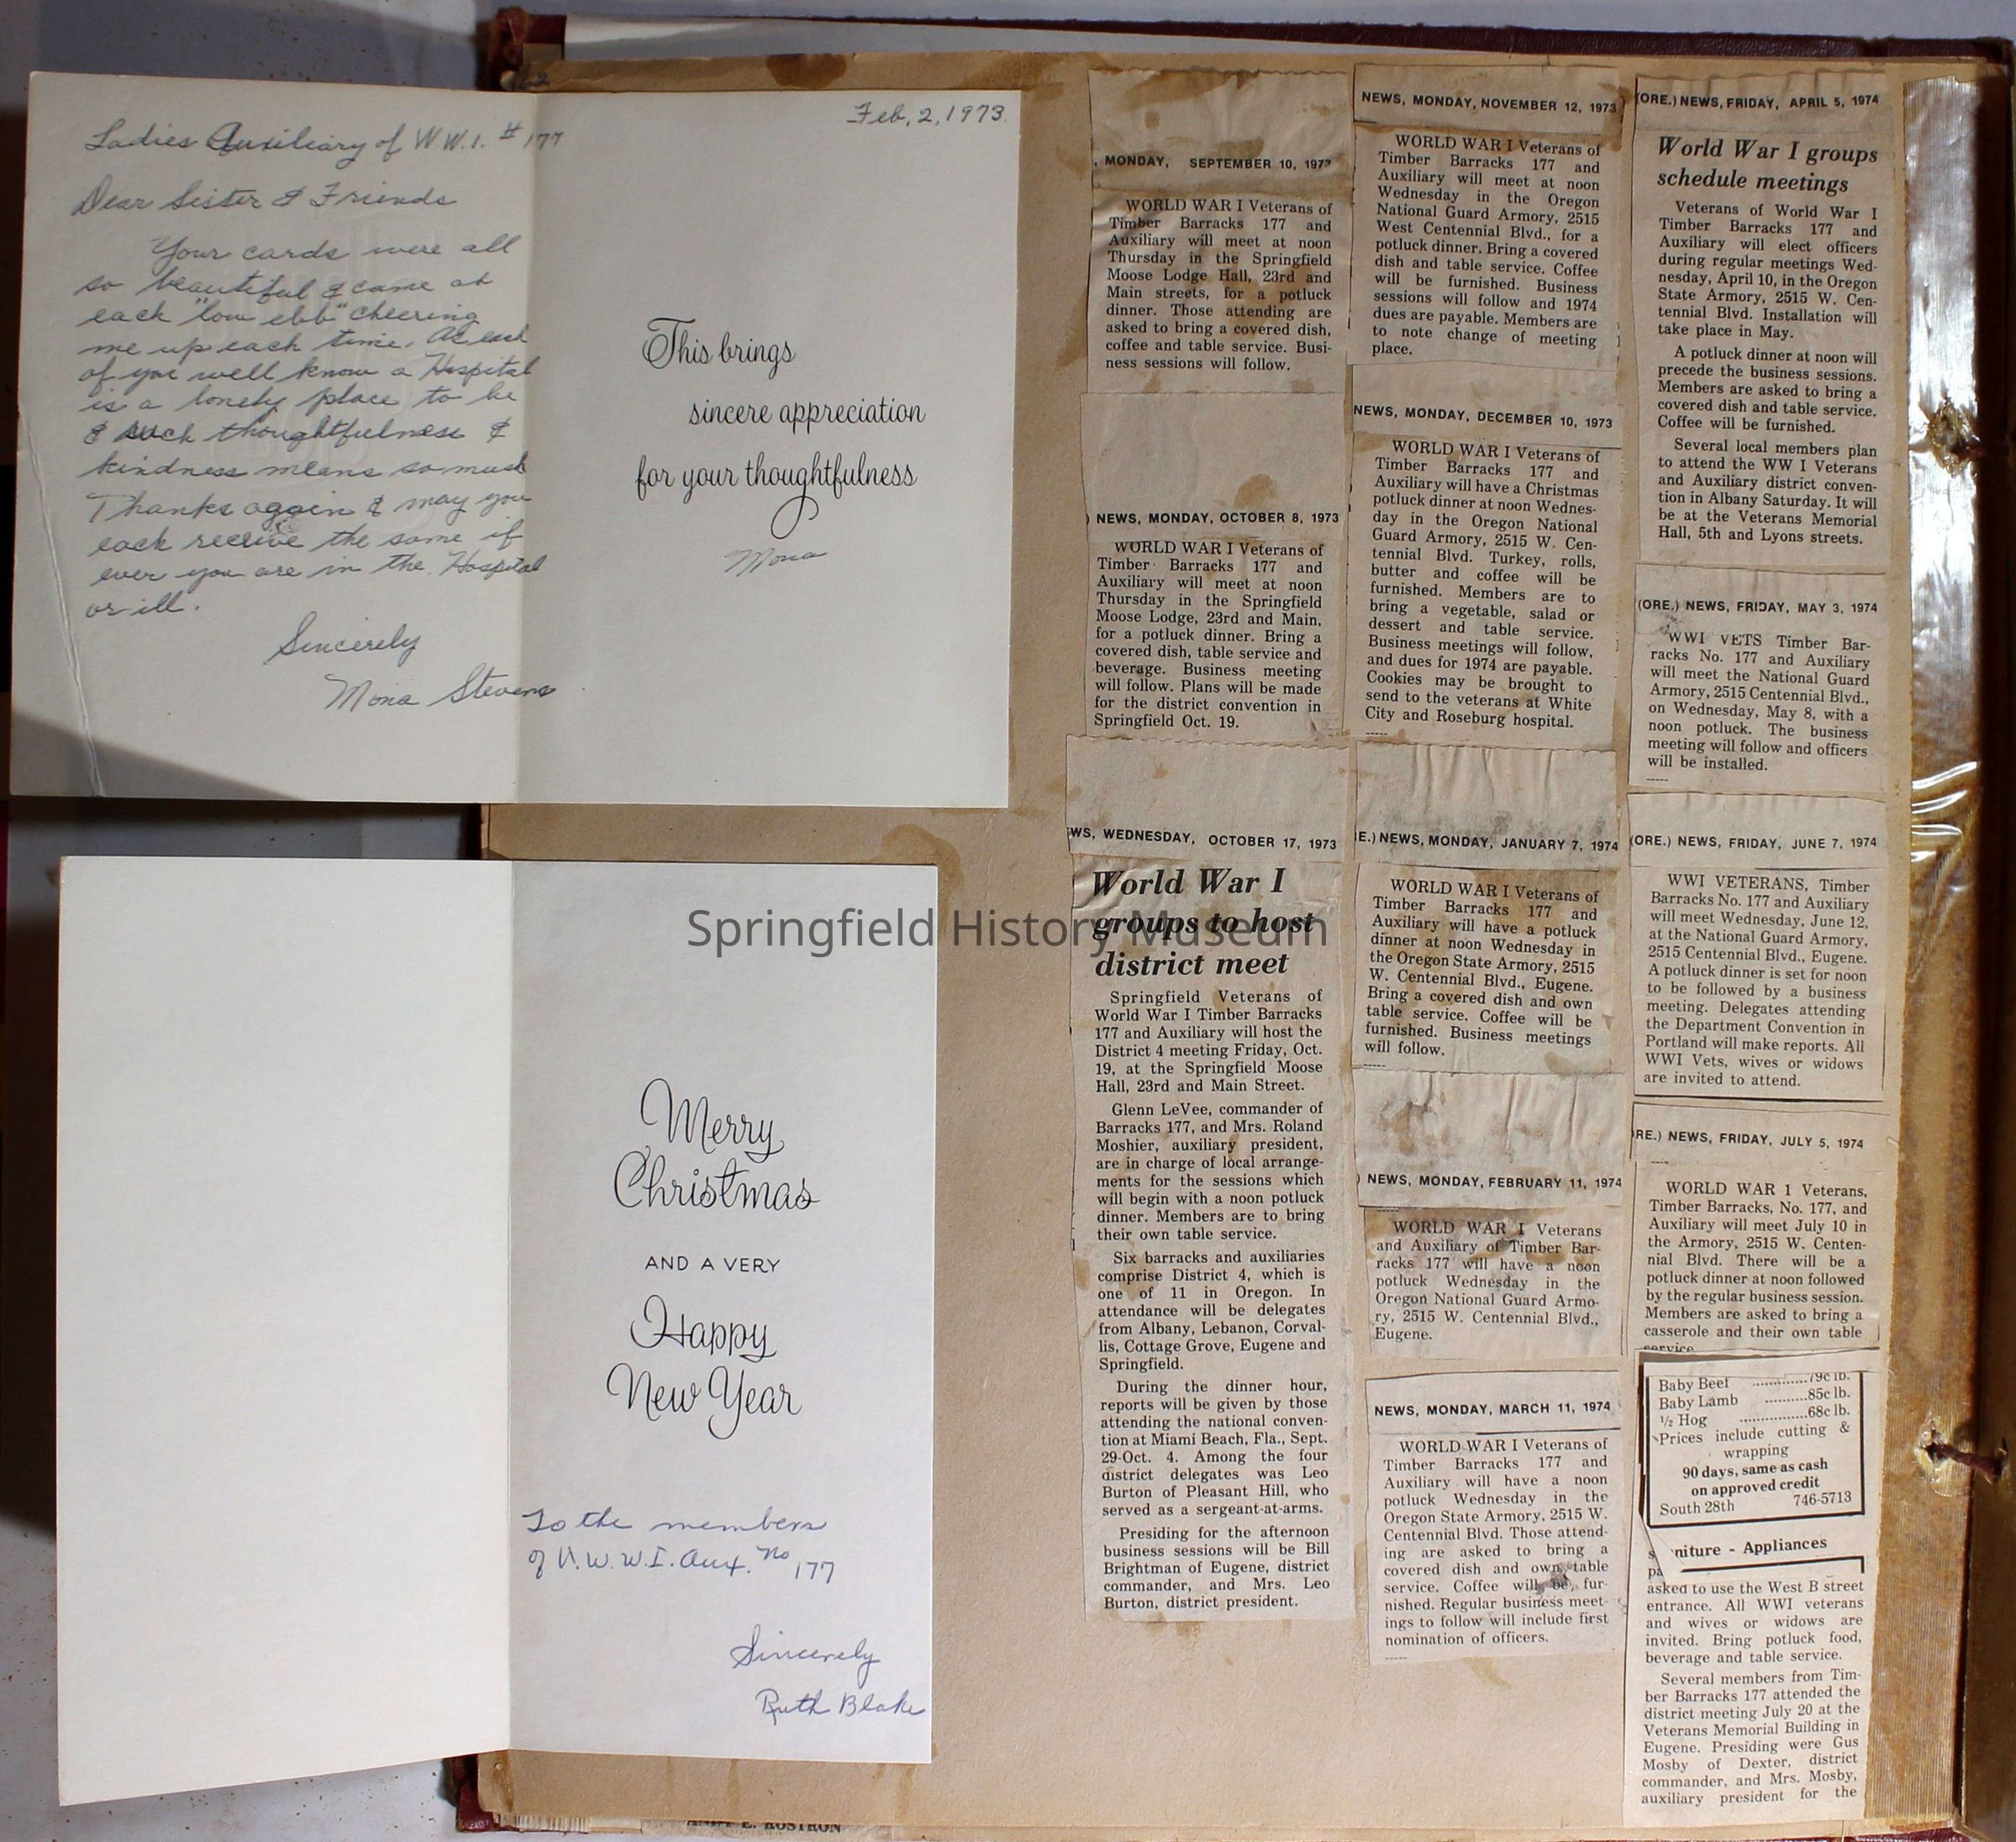 Feb, 2, 1973
Ladies Auxiliary of W.W.1. # 177
Dear Sister & Friends
Your cards were all
so beautiful & came at
each "low ebb" cheering
me up each time. As each
of you well know a Hospital
is a lonely place to be
& such thoughtfulness &
kindness means so much
Thanks again & may you
each receive the same if
ever you are in the Hospital
or ill.
Sincerely
Mona Stevens
This brings
sincere appreciation
for your thoughtfulness
Mona
Merry
Christmas
AND A VERY
Happy
New Year
To the members
of V.W.W.I. Aux. No 177
Sincerely
Ruth Blake
, MONDAY, SEPTEMBER 10, 1973
WORLD WAR I Veterans of
Timber Barracks 177 and
Auxiliary will meet at noon
Thursday in the Springfield
Moose Lodge Hall, 23rd and
Main streets, for a potluck
dinner. Those attending are
asked to bring a covered dish,
coffee and table service. Busi-
ness sessions will follow.
) NEWS, MONDAY, OCTOBER 8, 1973
WORLD WAR I Veterans of
Timber Barracks 177 and
Auxiliary will meet at noon
Thursday in the Springfield
Moose Lodge, 23rd and Main,
for a potluck dinner. Bring a
covered dish, table service and
beverage. Business meeting
will follow. Plans will be made
for the district convention in
Springfield Oct. 19.
WS, WEDNESDAY, OCTOBER 17, 1973
World War I
groups to host
district meet
Springfield Veterans of
World War I Timber Barracks
177 and Auxiliary will host the
District 4 meeting Friday, Oct.
19, at the Springfield Moose
Hall, 23rd and Main Street.
Glenn LeVee, commander of
Barracks 177, and Mrs. Roland
Moshier, auxiliary president,
are in charge of local arrange-
ments for the sessions which
will begin with a noon potluck
dinner. Members are to bring
their own table service.
Six barracks and auxiliaries
comprise District 4, which is
one of 11 in Oregon. In
attendance will be delegates
from Albany, Lebanon, Corval-
lis, Cottage Grove, Eugene and
Springfield.
During the dinner hour,
reports will be given by those
attending the national conven-
tion at Miami Beach, Fla., Sept.
29-Oct. 4. Among the four
district delegates was Leo
Burton of Pleasant Hill, who
served as a sergeant-at-arms.
Presiding for the afternoon
business sessions will be Bill
Brightman of Eugene, district
commander, and Mrs. Leo
Burton, district president.
NEWS, MONDAY, NOVEMBER 12, 1973
WORLD WAR I Veterans of
Timber Barracks 177 and
Auxiliary will meet at noon
Wednesday in the Oregon
National Guard Armory, 2515
West Centennial Blvd., for a
potluck dinner. Bring a covered
dish and table service. Coffee
will be furnished. Business
sessions will follow and 1974
dues are payable. Members are
to note change of meeting
place.
NEWS, MONDAY, DECEMBER 10, 1973
WORLD WAR I Veterans of
Timber Barracks 177 and
Auxiliary will have a Christmas
potluck dinner at noon Wednes-
day in the Oregon National
Guard Armory, 2515 W. Cen-
tennial Blvd. Turkey, rolls,
butter and coffee will be
furnished. Members are to
bring a vegetable, salad or
dessert and table service.
Business meetings will follow,
and dues for 1974 are payable.
Cookies may be brought to
send to the veterans at White
City and Roseburg hospital.
E.) NEWS, MONDAY, JANUARY 7, 1974
WORLD WAR I Veterans of
Timber Barracks 177 and
Auxiliary will have a potluck
dinner at noon Wednesday in
the Oregon State Armory, 2515
W. Centennial Blvd., Eugene.
Bring a covered dish and own
table service. Coffee will be
furnished. Business meetings
will follow.
) NEWS, MONDAY, FEBRUARY 11, 1974
WORLD WAR I Veterans
and Auxiliary of Timber Bar-
racks 177 will have a noon
potluck Wednesday in the
Oregon National Guard Armo-
ry, 2515 W. Centennial Blvd.,
Eugene.
NEWS, MONDAY, MARCH 11, 1974
WORLD WAR I Veterans of
Timber Barracks 177 and
Auxiliary will have a noon
potluck Wednesday in the
Oregon State Armory, 2515 W.
Centennial Blvd. Those attend-
ing are asked to bring a
covered dish and own table
service. Coffee will be fur-
nished. Regular business meet-
ings to follow will include first
nomination of officers.
(ORE.) NEWS, FRIDAY, APRIL 5, 1974
World War I groups
schedule meetings
Veterans of World War I
Timber Barracks 177 and
Auxiliary will elect officers
during regular meetings Wed-
nesday, April 10, in the Oregon
State Armory, 2515 W. Cen-
tennial Blvd. Installation will
take place in May.
A potluck dinner at noon will
precede the business sessions.
Members are asked to bring a
covered dish and table service.
Coffee will be furnished.
Several local members plan
to attend the WW I Veterans
and Auxiliary district conven-
tion in Albany Saturday. It will
be at the Veterans Memorial
Hall, 5th and Lyons streets.
(ORE.) NEWS, FRIDAY, MAY 3, 1974
WWI VETS Timber Bar-
racks No. 177 and Auxiliary
will meet the National Guard
Armory, 2515 Centennial Blvd.,
on Wednesday, May 8, with a
noon potluck. The business
meeting will follow and officers
will be installed.
(ORE.) NEWS, FRIDAY, JUNE 7, 1974
WWI VETERANS, Timber
Barracks No. 177 and Auxiliary
will meet Wednesday, June 12,
at the National Guard Armory,
2515 Centennial Blvd., Eugene.
A potluck dinner is set for noon
to be followed by a business
meeting. Delegates attending
the Department Convention in
Portland will make reports. All
WWI Vets, wives or widows
are invited to attend.
RE.) NEWS, FRIDAY, JULY 5, 1974
WORLD WAR I Veterans,
Timber Barracks, No. 177, and
Auxiliary will meet July 10 in
the Armory, 2515 W. Centen-
nial Blvd. There will be a
potluck dinner at noon followed
by the regular business session.
Members are asked to bring a
casserole and their own table
service
Baby Beef 79c lb.
Baby Lamb 85c lb.
½ Hog 68c lb.
Prices include cutting &
wrapping
90 days, same as cash
on approved credit
South 28th 746-5713
niture - Appliances
pa
asked to use the West B street
entrance. All WWI veterans
and wives or widows are
invited. Bring potluck food,
beverage and table service.
Several members from Tim-
ber Barracks 177 attended the
district meeting July 20 at the
Veterans Memorial Building in
Eugene. Presiding were Gus
Mosby of Dexter, district
commander, and Mrs. Mosby,
auxiliary president for the
Springfield History Museum
E. ROSTRON